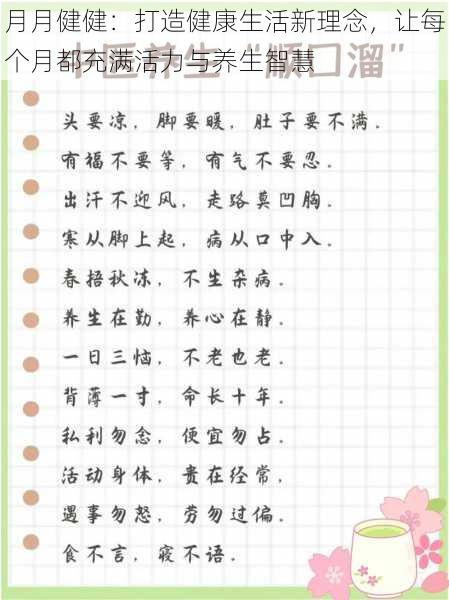 月月健健：打造健康生活新理念，让每
个月都充满活力与养生智慧
中医养生“顺口溜”
头要凉，脚要暖，肚子要不满．
有福不要等，有气不要忍．
出汗不迎风，走路莫凹胸．
寒从脚上起，病从口中入．
春捂秋冻，不生杂病．
养生在勤，养心在静．
一日三恼，不老也老．
背薄一寸，命长十年．
私利勿念，便宜勿占．
活动身体，贵在经常，
遇事勿怒，劳勿过偏．
食不言，寝不语．